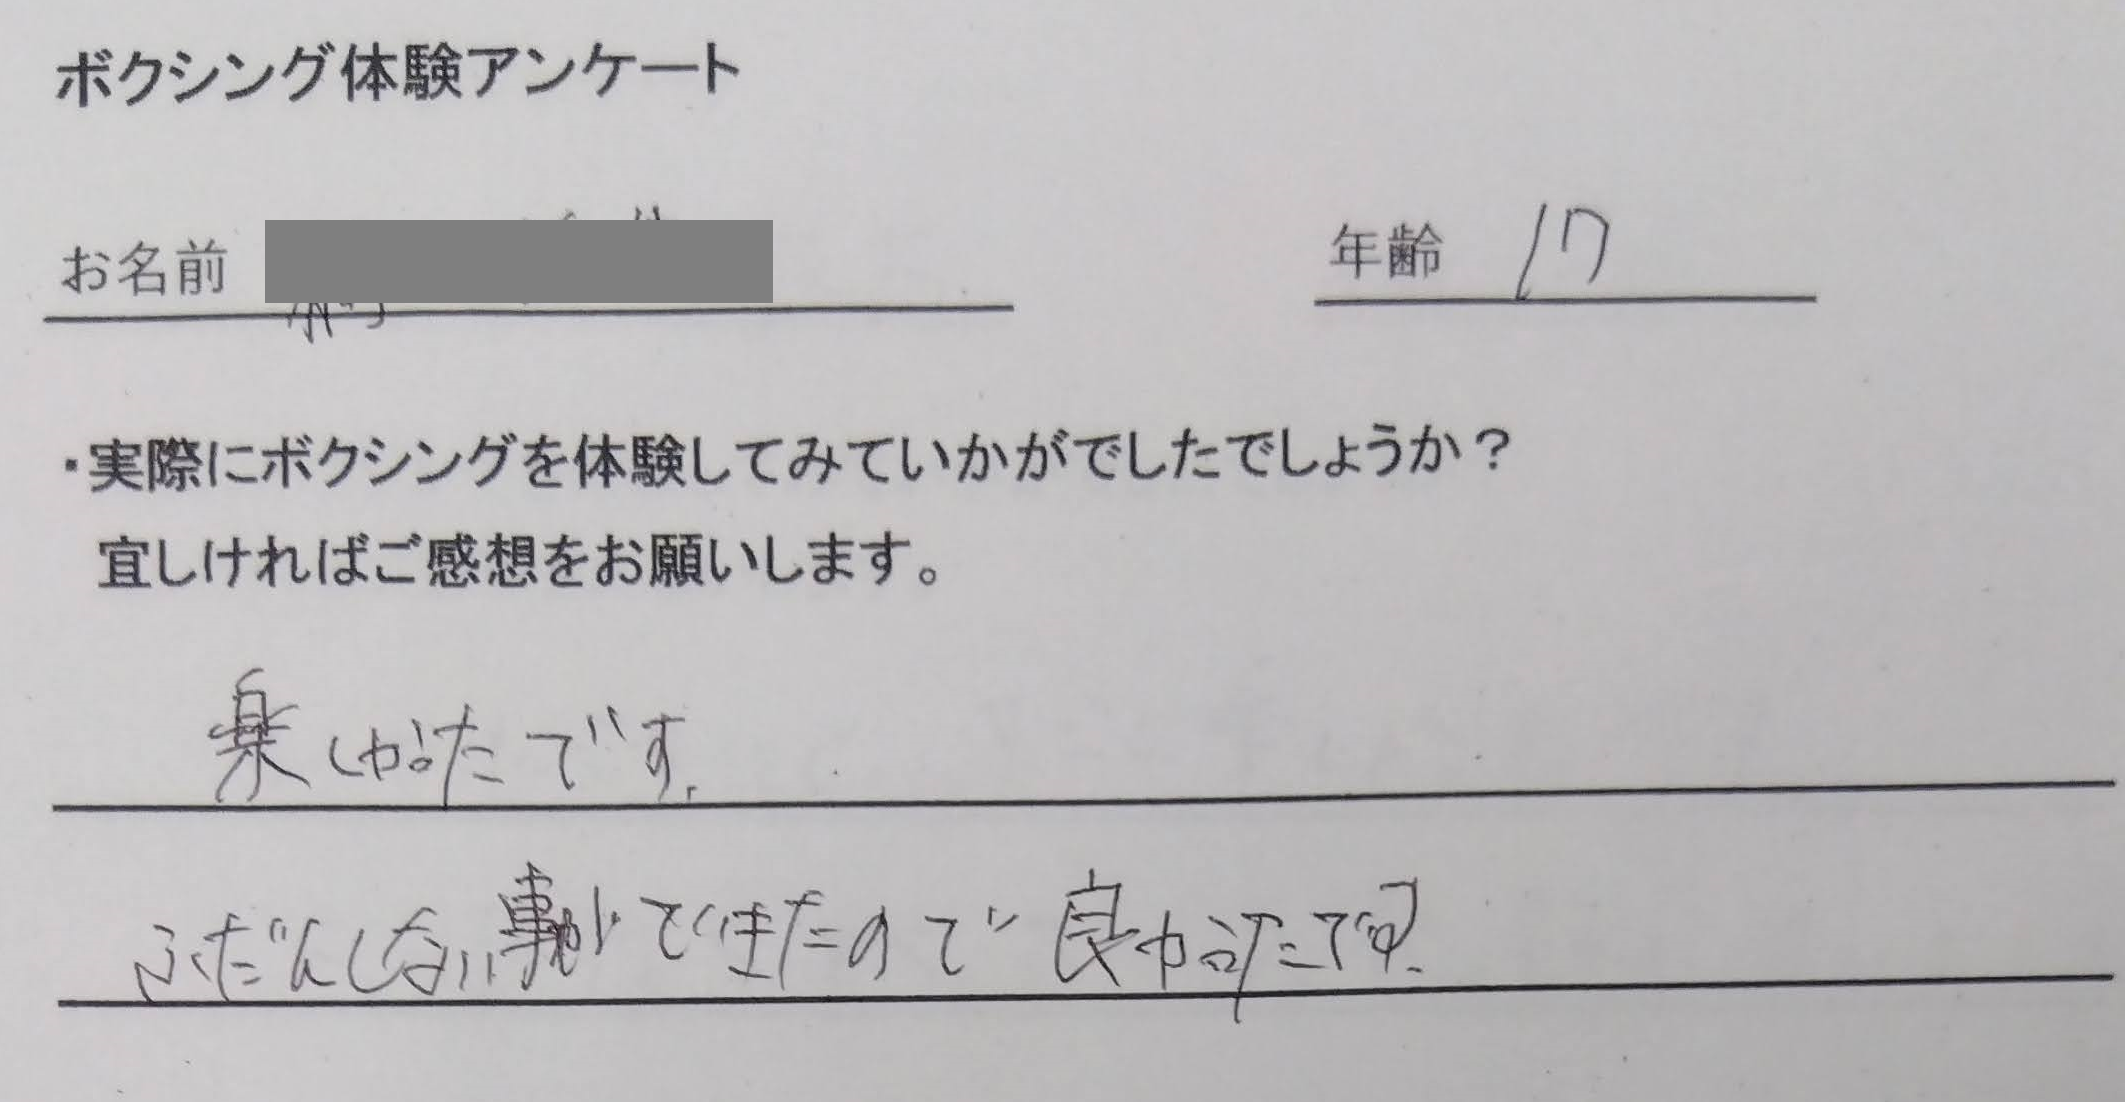 ボクシング体験アンケート
お名前 年齢 17
・実際にボクシングを体験してみていかがでしたでしょうか？
宜しければご感想をお願いします。
楽しかったです.
ふだんしない事ができたので良かったです.